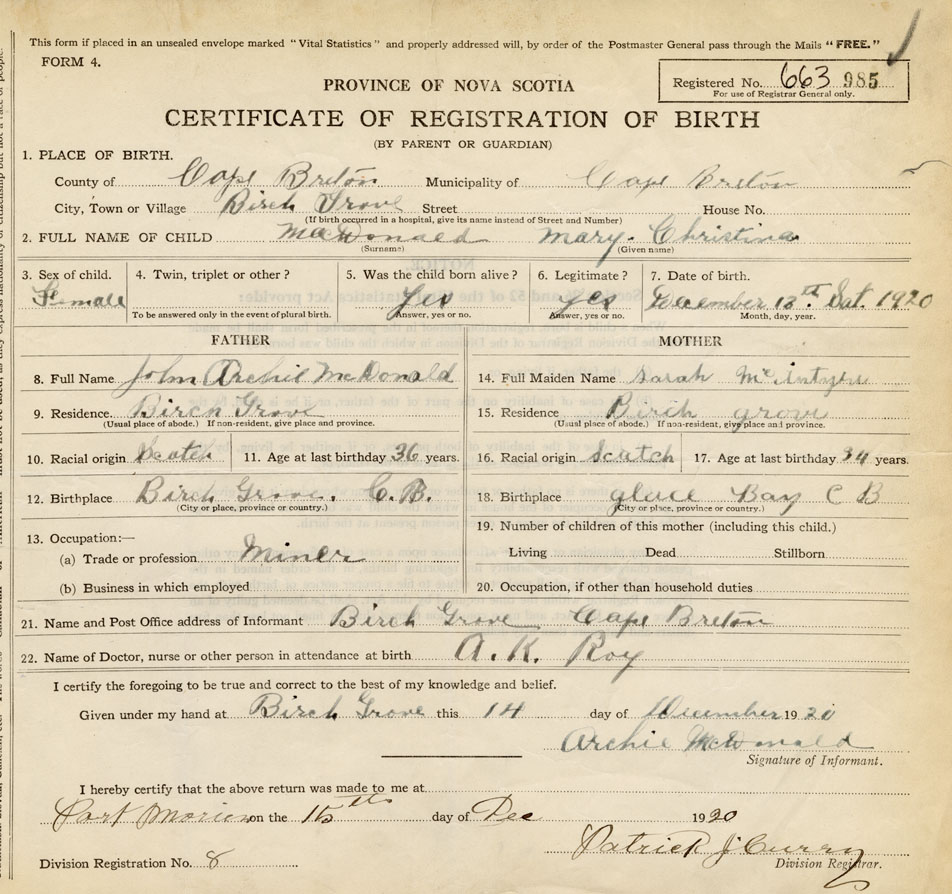 This form if placed in an unsealed envelope marked "Vital Statistics" and properly addressed will, by order of the Postmaster General pass through the Mails "FREE."
FORM 4.
Registered No. 663 985
For use of Registrar General only.
PROVINCE OF NOVA SCOTIA
CERTIFICATE OF REGISTRATION OF BIRTH
(BY PARENT OR GUARDIAN)
1. PLACE OF BIRTH.
County of Cape Breton Municipality of Cape Breton
City, Town or Village Birch Grove Street House No.
(If birth occurred in a hospital, give its name instead of Street and Number)
2. FULL NAME OF CHILD McDonald Mary Christina
(Surname) (Given name)
3. Sex of child. 4. Twin, triplet or other? 5. Was the child born alive? 6. Legitimate? 7. Date of birth.
Female Yes yes December 12th Sat. 1920
To be answered only in the event of plural birth. Answer, yes or no. Answer, yes or no. Month, day, year.
FATHER MOTHER
8. Full Name John Archie McDonald 14. Full Maiden Name Sarah McIntyre
9. Residence. Birch Grove 15. Residence Birch grove
(Usual place of abode.) If non-resident, give place and province. (Usual place of abode.) If non-resident, give place and province.
10. Racial origin Scotch 11. Age at last birthday 36 years. 16. Racial origin Scotch 17. Age at last birthday 34 years.
12. Birthplace Birch Grove. C.B. 18. Birthplace glace Bay C B
(City or place, province or country.) (City or place, province or country.)
13. Occupation:— 19. Number of children of this mother (including this child.)
(a) Trade or profession Miner Living Dead Stillborn
(b) Business in which employed 20. Occupation, if other than household duties
21. Name and Post Office address of Informant Birch Grove Cape Breton
22. Name of Doctor, nurse or other person in attendance at birth A. K. Roy
I certify the foregoing to be true and correct to the best of my knowledge and belief.
Given under my hand at Birch Grove this 14 day of December 1920
Archie McDonald
Signature of Informant.
I hereby certify that the above return was made to me at
Port Morien on the 15th day of Dec 1920
Patrick J Curry
Division Registration No. 8 Division Registrar.